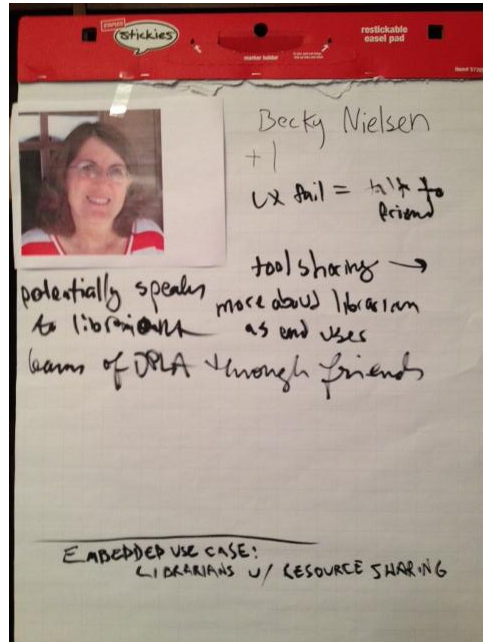 STAPLES
stickies
restickable
easel pad
marker holder
Becky Nielsen
+1
UX fail = talk to
friend
tool sharing →
potentially speaks
to librarians
more about librarian
as end user
learns of DPLA through friends
EMBEDDED USE CASE:
LIBRARIANS w/ RESOURCE SHARING